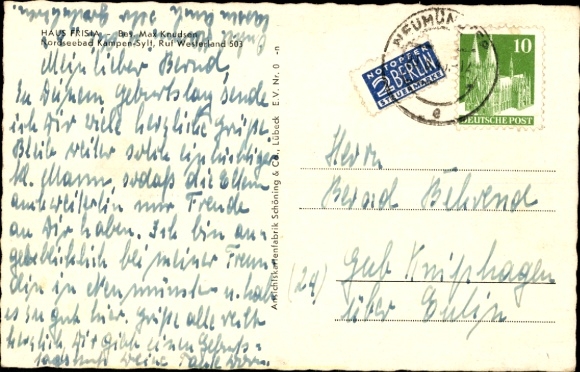 HAUS FRISIA Bes. Max Knudsen
Nordseebad Kampen-Sylt, Ruf Westerland 503
Mein lieber Bernd,
Zu Deinem Geburtstag sende
ich Dir viele herzliche Grüße.
Bleib weiter so ein lustiger
kl. Mann, sodaß die Eltern
weiterhin nur Freude
an Dir haben. Ich bin
augenblicklich bei meiner Freun-
din in Neumünster u. hab
es so gut hier. Grüße alle recht
herzlich. Dir gibt einen Geburts-
tagskuß Deine Tante
Ansichtskartenfabrik Schöning & Co., Lübeck E.V. Nr. 0 -n
NEUMÜNSTER
e
NOTOPFER
2 BERLIN
STEUERMARKE
10
DEUTSCHE POST
Herrn
Bernd Behrend
(24) Gut Kniphagen
über Eutin